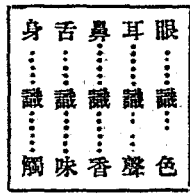 眼⋯⋯識⋯⋯色
耳⋯⋯識⋯⋯聲
鼻⋯⋯識⋯⋯香
舌⋯⋯識⋯⋯味
身⋯⋯識⋯⋯觸